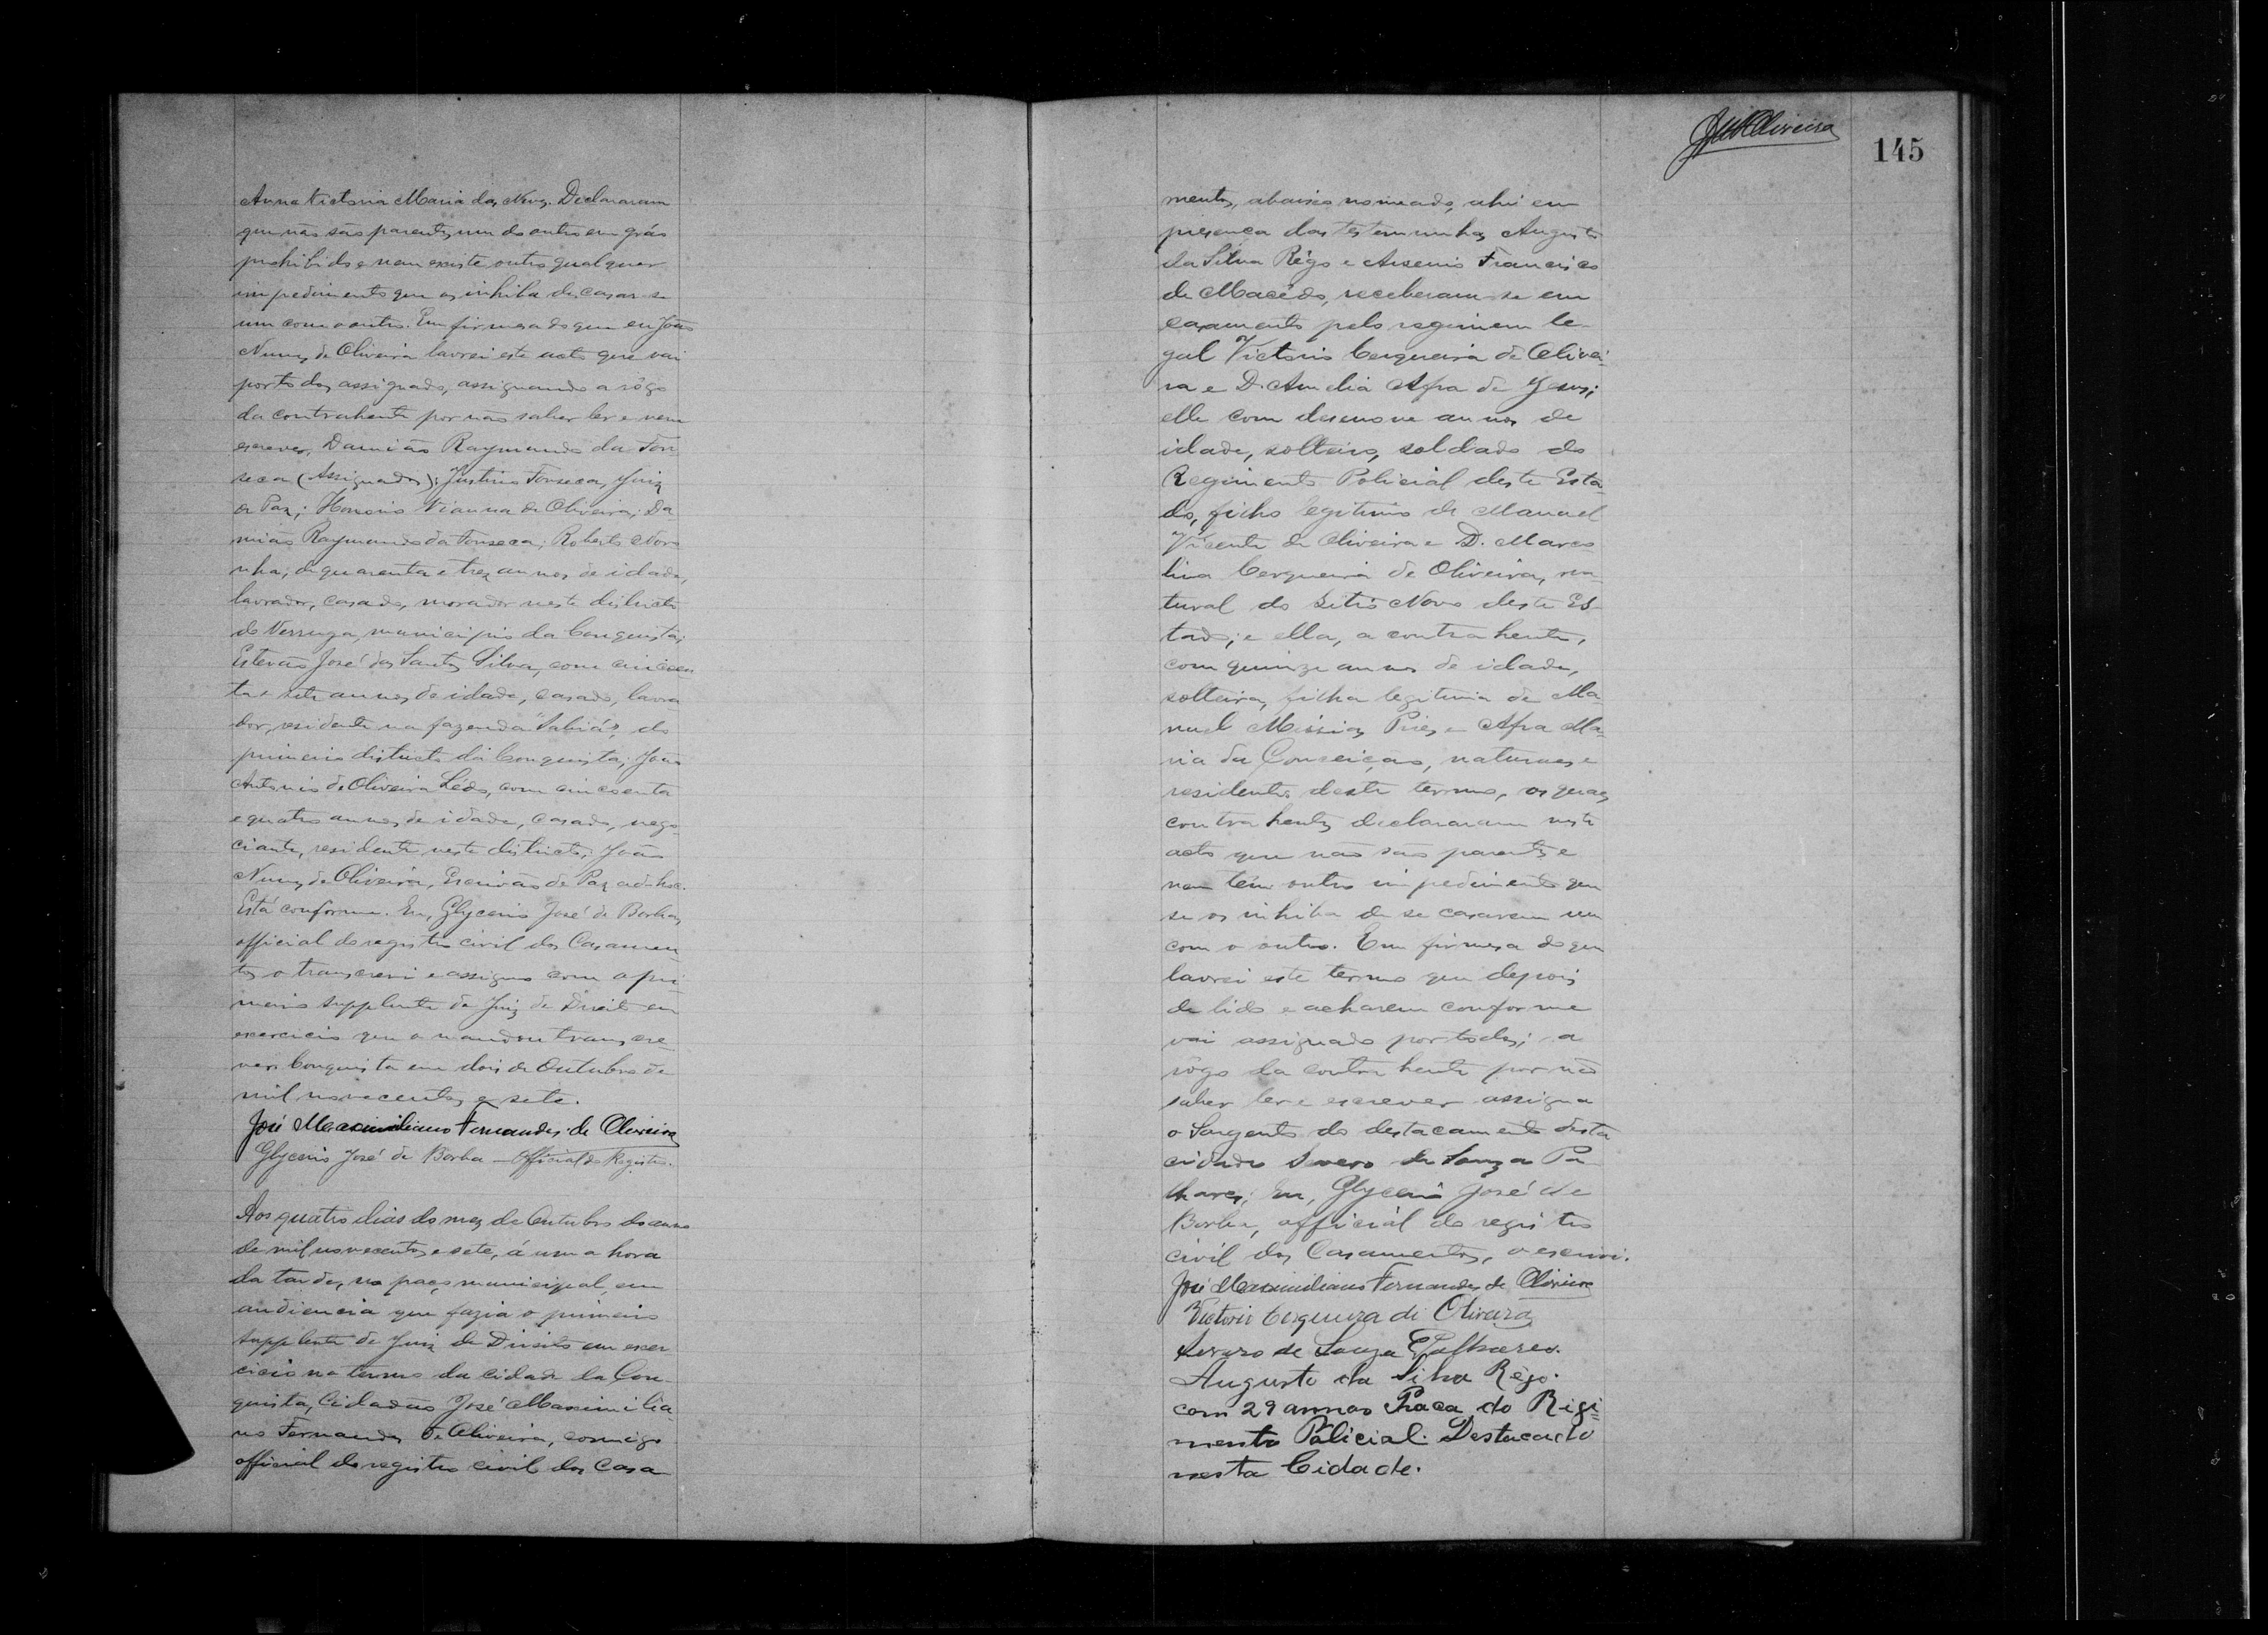 Anna Victoria Maria das Neves. Declararam
que não são parentes um do outro em gráo
prohibido e nem existe outro qualquer
impedimento que os inhiba de casar-se
um com o outro. Em firmesa do que eu João
Nunes de Oliveira lavrei este acto que vai
por todos assignado, assignando a rôgo
da contrahente por não saber ler e nem
escrever, Damião Raymundo da Fon
seca (Assignados): Justino Fonseca, Juiz
de Paz; Honorio Vianna de Oliveira; Da
mião Raymundo da Fonseca; Roberto Noro
nha, de quarenta e trez annos de idade,
lavrador, casado, morador neste districto
do Verruga, municipio da Conquista;
Estevão José dos Santos Silva, com cincoen
ta e sete annos de idade, casado, lavra
dor, residente na fazenda "Sabiá", do
primeiro districto da Conquista; João
Antonio de Oliveira Lédo, com cincoenta
e quatro annos de idade, casado, nego-
ciante, residente neste districto; João
Nunes de Oliveira, Escrivão de Paz ad-hoc.
Está conforme. Eu, Glycerio José de Borba,
official do registro civil dos Casamen
tos o transcrevi e assigno com o pri-
meiro supplente de Juiz de Direito em
exercicio que o mandou transcre-
ver. Conquista em dois de Outubro de
mil novecentos e sete.
José Maximiliano Fernandes de Oliveira
Glycerio José de Borba - Official do Registro.
Aos quatro dias do mez de Outubro do anno
de mil novecentos e sete, á uma hora
da tarde, no paço municipal, em
audiencia que fazia o primeiro
supplente de Juiz de Direito em exer
cicio no termo da cidade da Con
quista, Cidadão José Maximilia-
no Fernandes de Oliveira, comigo
official do registro civil dos Casa
145
mentos, abaixo nomeado, ahi em
presença das testemunhas Augusto
da Silva Rêgo e Arsenio Francisco
de Macêdo, receberam-se em
casamento pelo regimem le-
gal Victorio Cerqueira de Olivei-
ra e D. Amelia Afra de Jesus;
elle com desenove annos de
idade, solteiro, soldado do
Regimento Policial deste Esta-
do, filho legitimo de Manuel
Vicente de Oliveira e D. Marco
lina Cerqueira de Oliveira, na-
tural do Sitio Novo deste Es-
tado; e ella, a contrahente,
com quinze annos de idade,
solteira, filha legitima de Ma-
nuel Missias Pires e Afra Ma-
ria da Conceição, naturaes e
residentes deste termo, os quaes
contrahentes declararam neste
acto que não são parentes e
nem têm outro impedimento que
se os inhiba de se casarem um
com o outro. Em firmesa do que
lavrei este termo que depois
de lido e acharem conforme
vai assignado por todos; a
rôgo da contrahente por não
saber ler e escrever assigna
o Sargento do destacamento desta
cidade de Souza Pa
lhares; Eu, Glycerio José de
Borba, official do registro
civil dos Casamentos, o escrevi.
José Maximiliano Fernandes de Oliveira
Victorio Cerqueira de Oliveira
de Souza Palhares.
Augusto da Silva Rêgo.
com 29 annos Praca do Rigi=
mento Policial. Destacado
nesta Cidade.